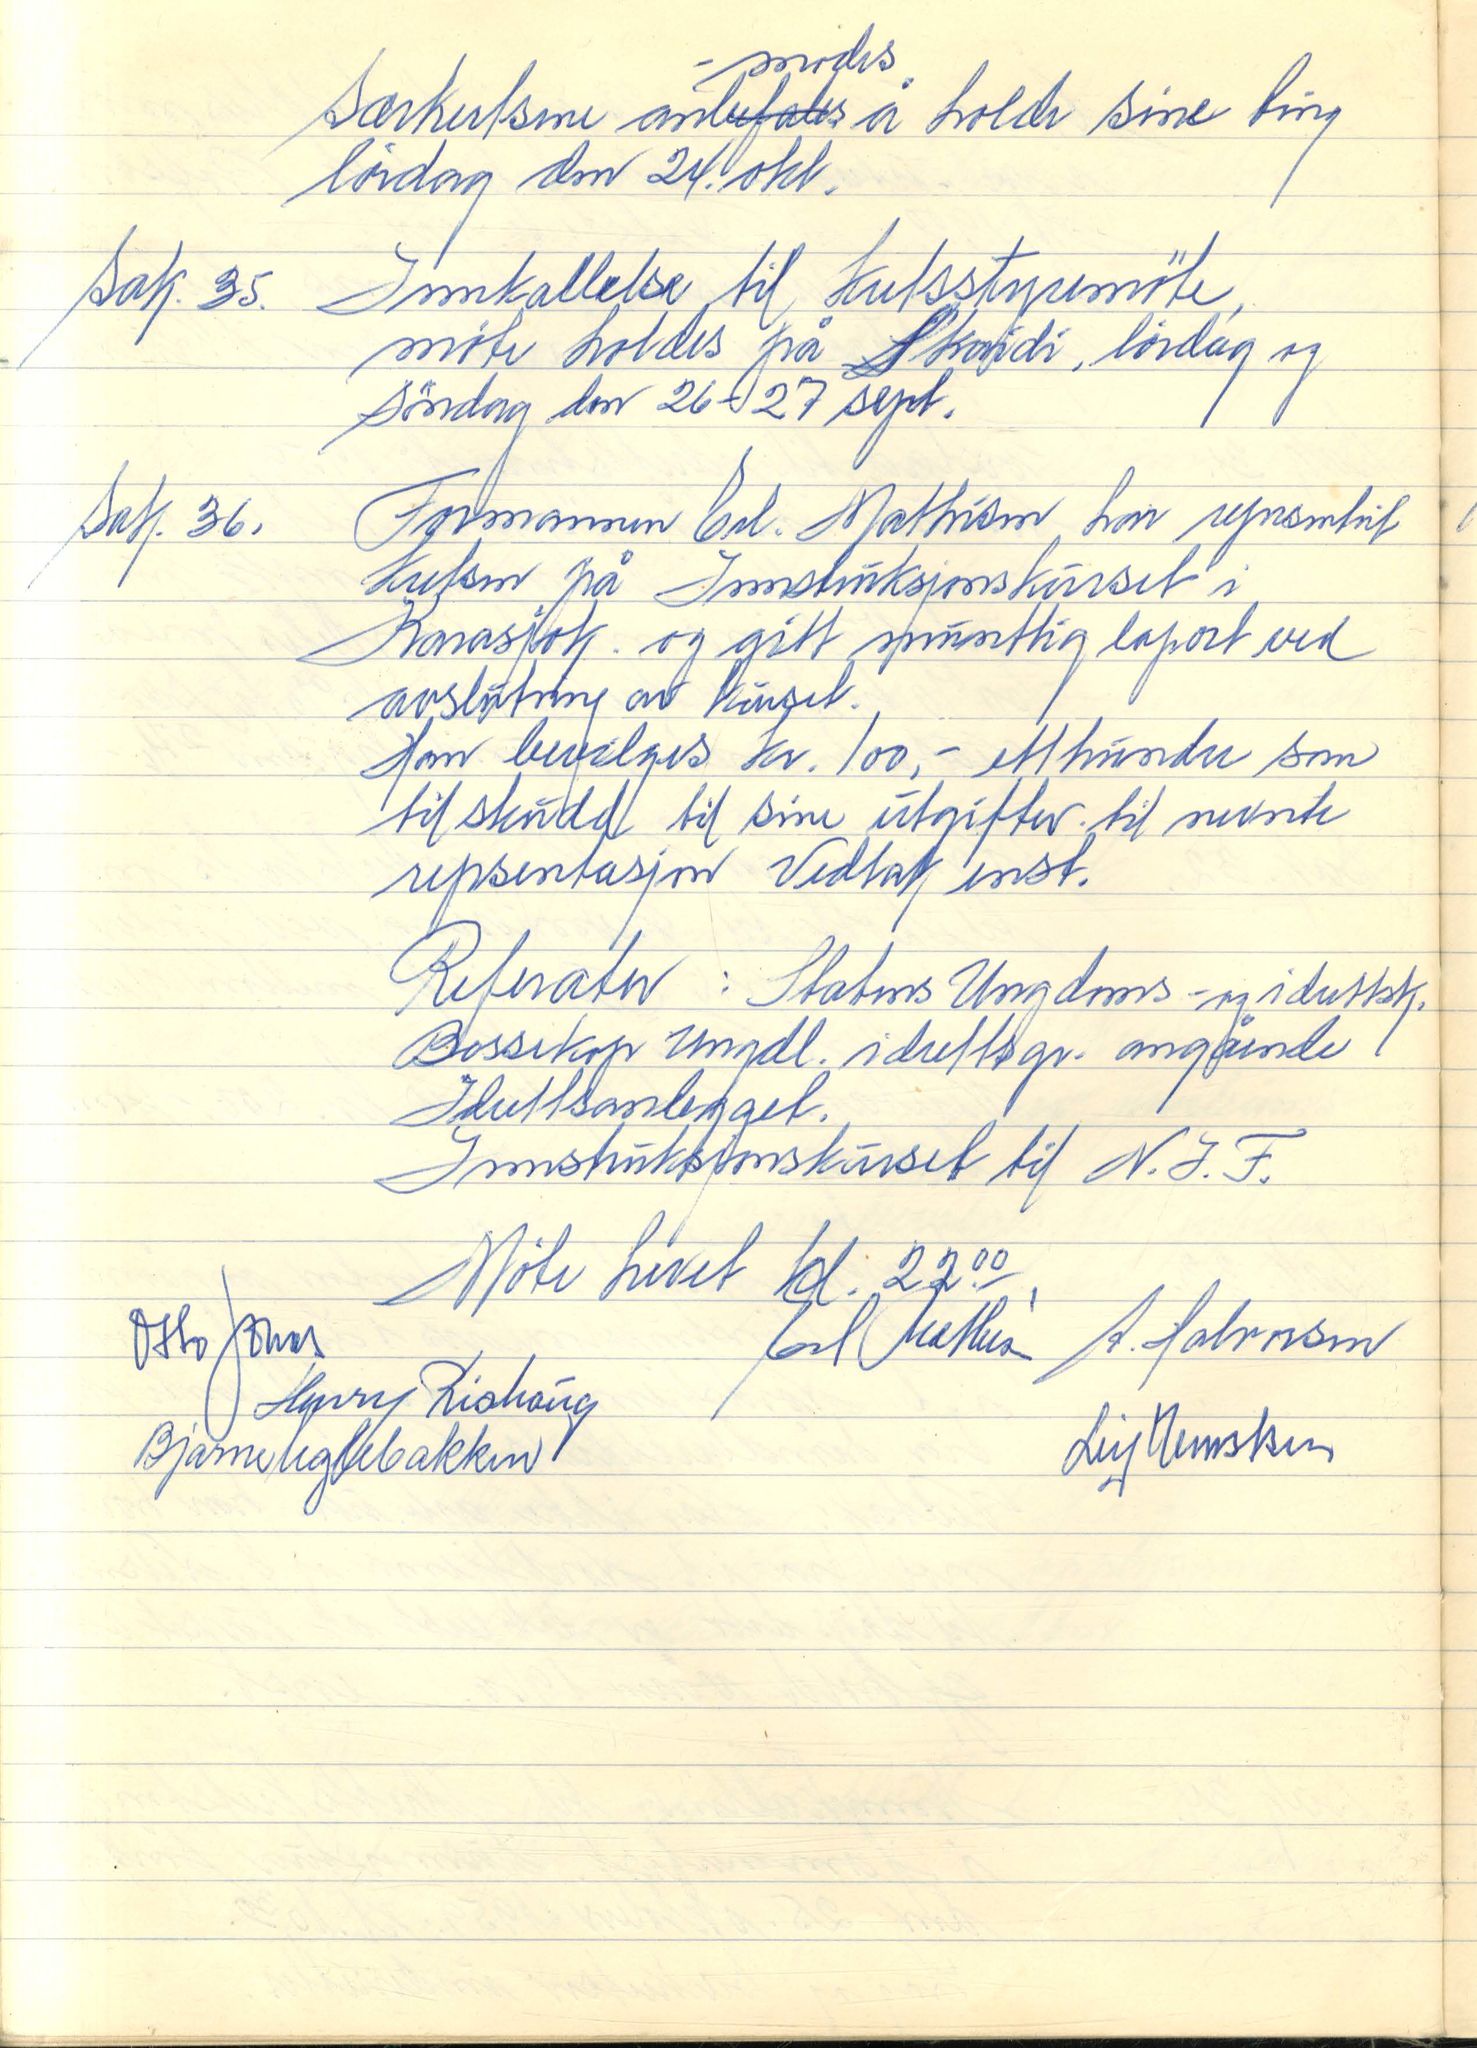 -modes
Særkretsene anbefales å holde sine ting
lördag den 24. okt.
Sak. 35. Innkallelse til kretsstyremöte,
möte holdes på Skaidi, lördag og
söndag den 26-27 sept.
Sak. 36. Formannen Erl. Mathisen har representert
kretsen på Innstruksjonskurset i
Karasjok. og gitt muntlig raport ved
avslutning av kurset.
Han bevilges kr. 100,- etthundre som
tilskudd til sine utgifter til nevnte
repsentasjon Vedtak enst.
Referater : Statens Ungdoms- og idrettsk.
Bossekop Ungdl. idrettsgr. angående
Idrettsanlegget.
Innstruksjonskurset til N.I.F.
Möte hevet kl. 22 00
Otto Jonas Erl Mathis A. Halvorsen
Henry Rishaug
Bjarne Uglebakken Leif